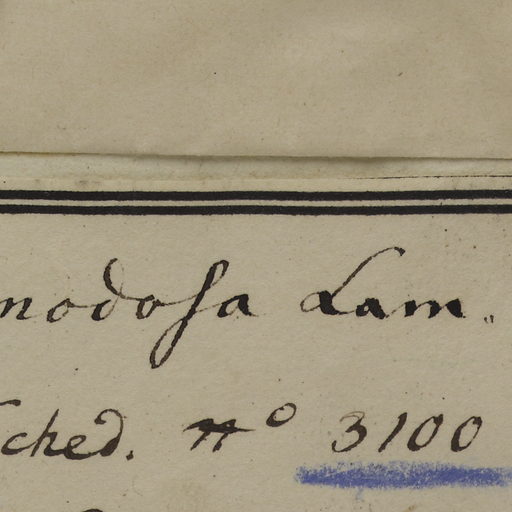 nodosa Lam.
ched. nº 3100